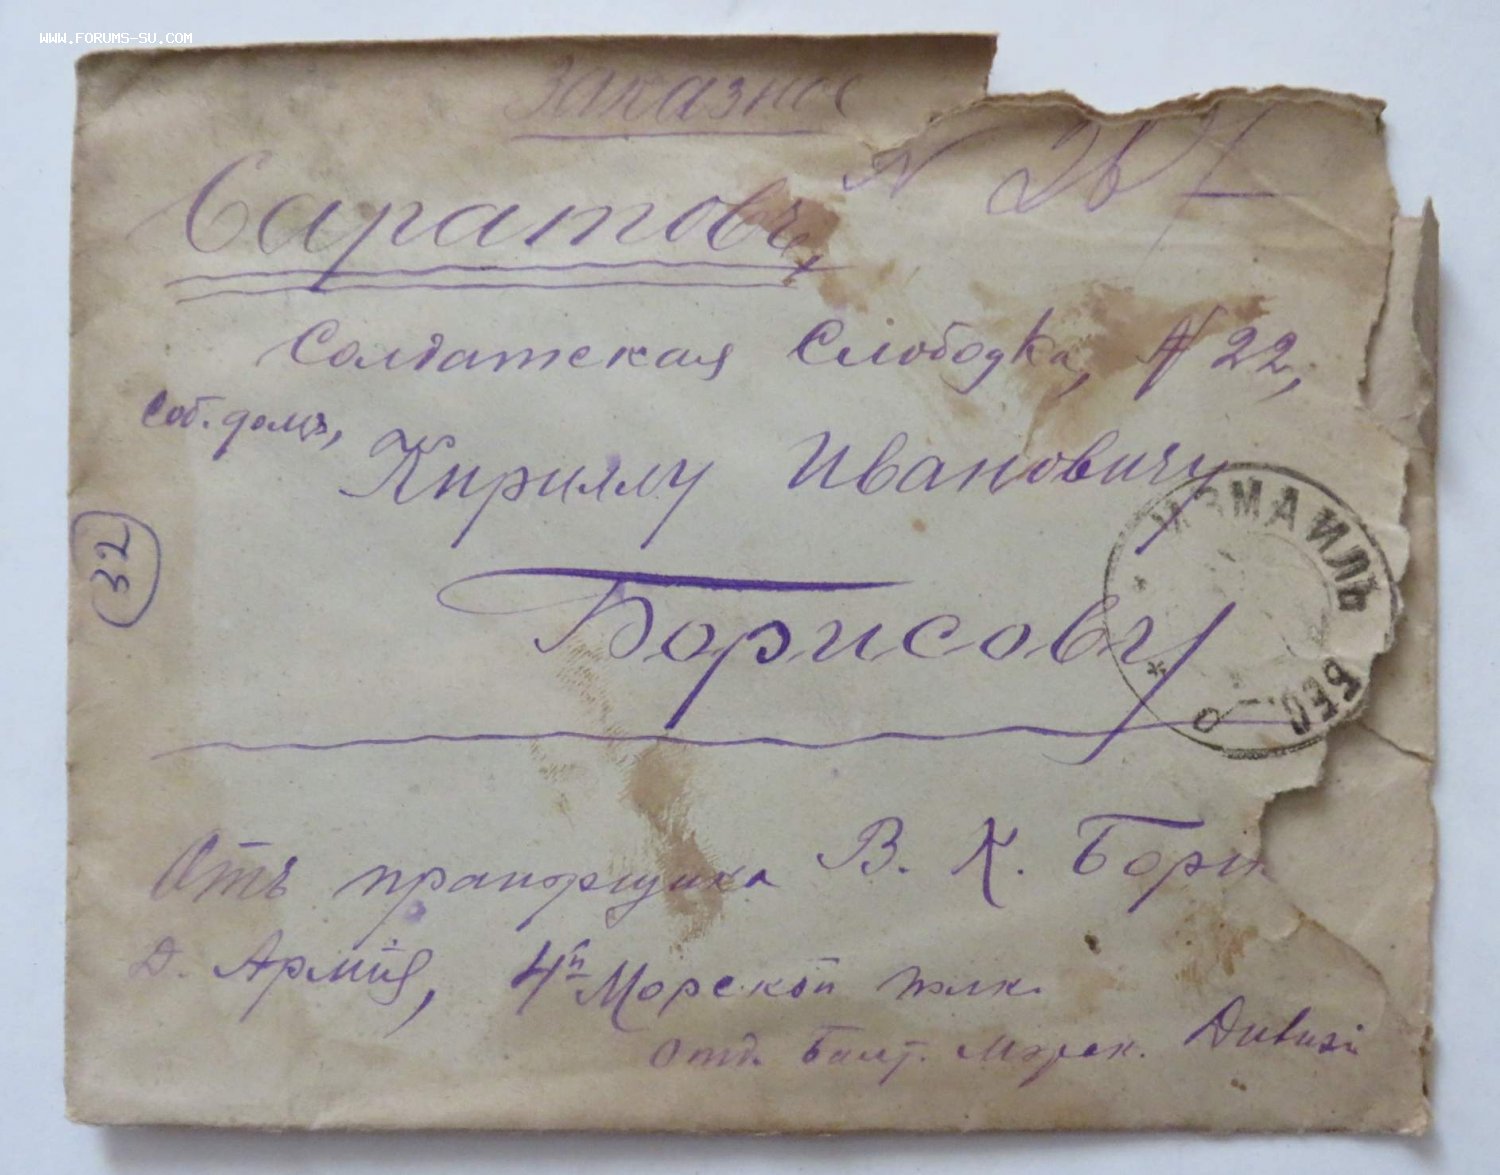 WWW.FORUMS-SU.COM
Заказное
N 267
Саратовъ,
Солдатская Слободка, N 22,
Соб. домъ,
Кириллу Ивановичу
Борисову
32
ИЗМАИЛЪ БЕС.
Отъ прапорщика В. К. Борис
Д. Армія, 4й Морской полк.
Отд. Балт. Морск. Дивизі